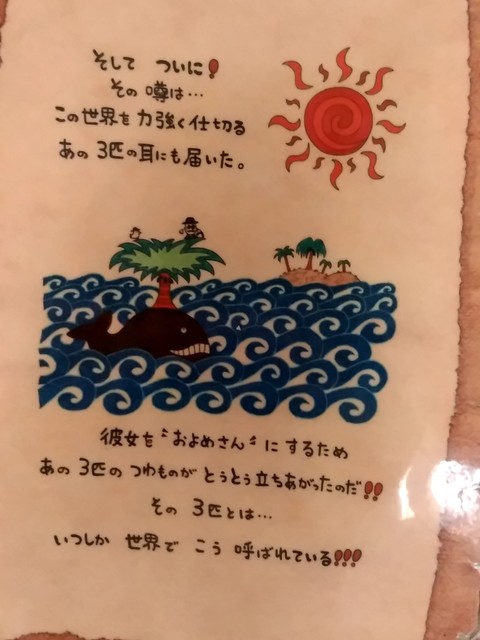 そして ついに!
その 噂は…
この世界を力強く仕切る
あの 3匹の耳にも届いた。
彼女を〝およめさん〟にするため
あの 3匹の つわものが とうとう立ちあがったのだ!!
その 3匹とは…
いつしか 世界で こう 呼ばれている!!!